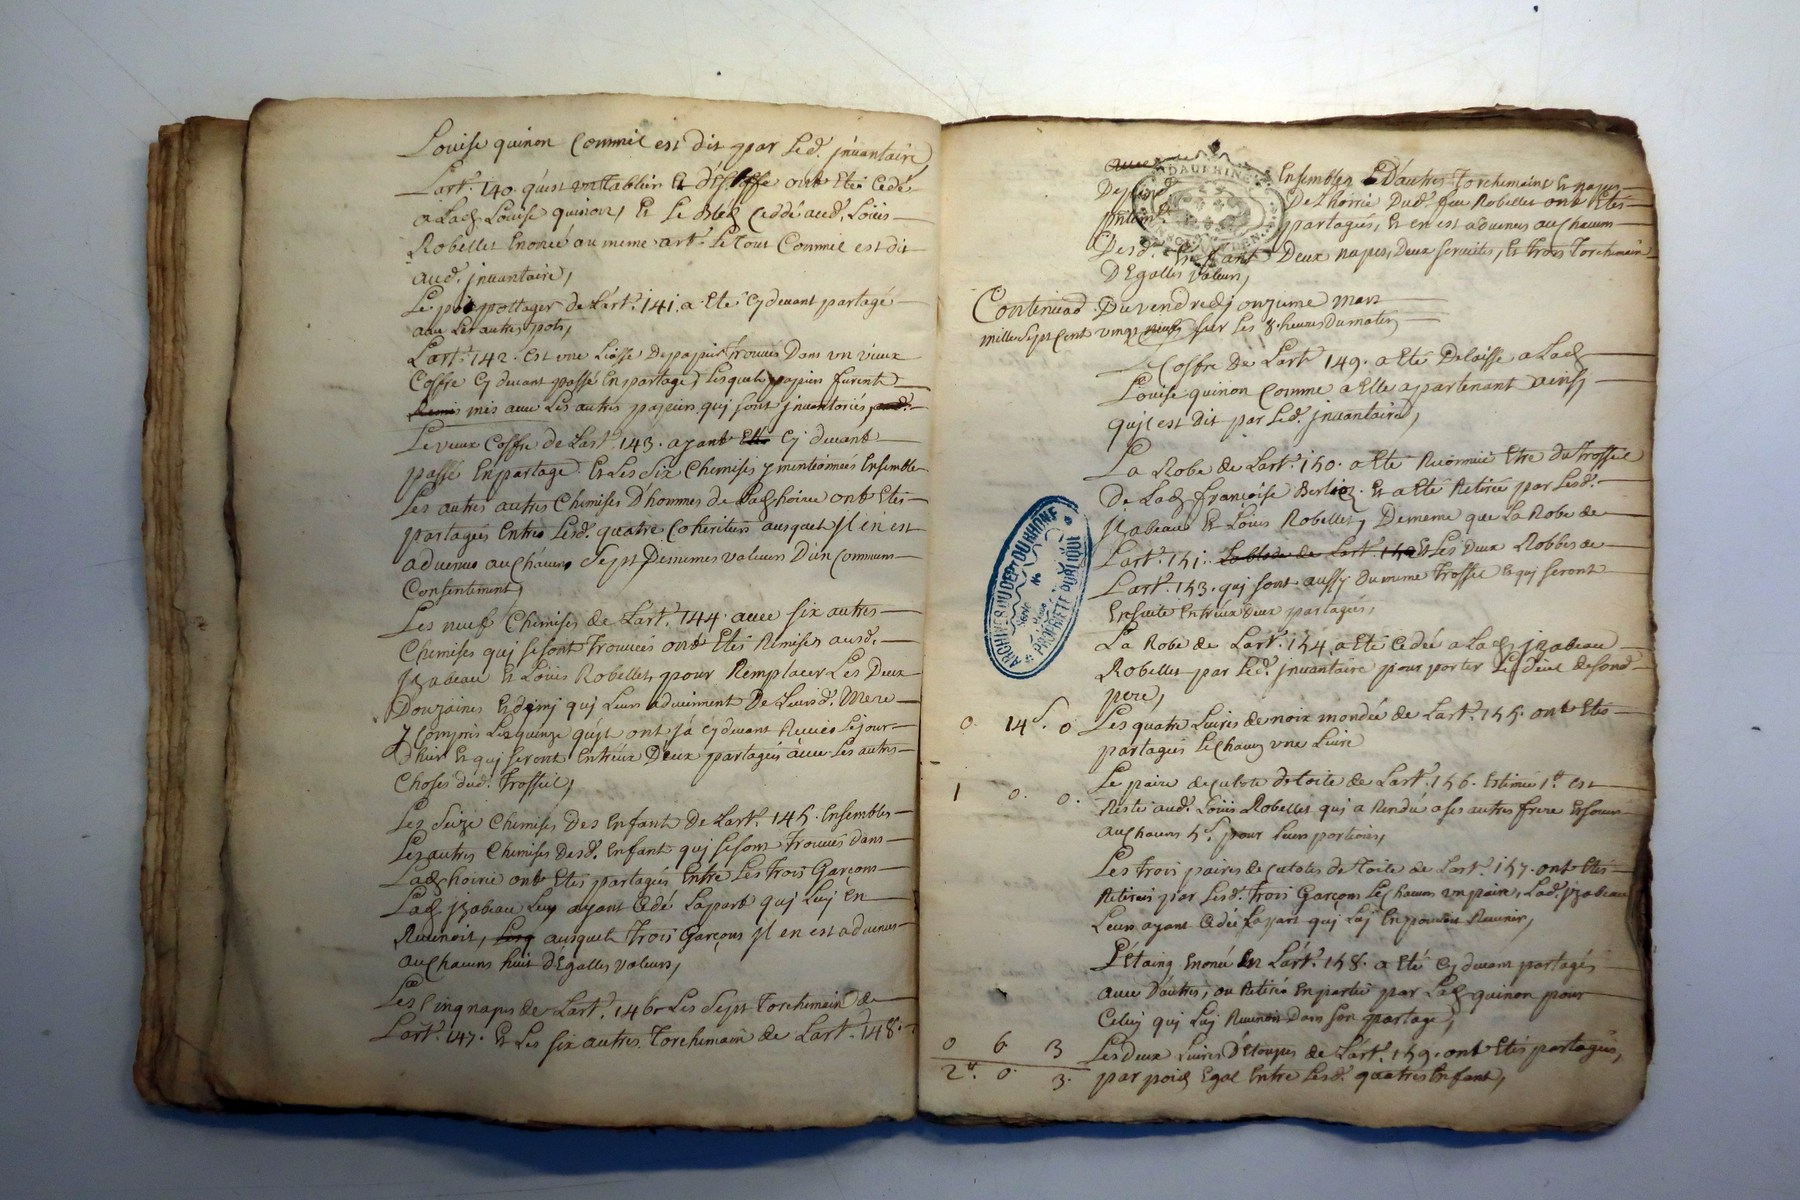 Louise quinon Comme il est dit par Led. jnuantaire,
L'art. 140. quiest un tablier Et d'Estoffe ont Eté Cedé
a Lad. Louise quinon, Et Le Bled Ceddé aud. Loüis
Robellet Enoncé au meme art. Le Tout Comme il est dit
aud. jnuantaire,
Le pot pottager de L'art. 141. a Eté Cy deuant partagé
auec Les autres pots,
L'art. 142. Est vne Liasse De papier Trouuée Dans vn vieux
Coffre Cy deuant passé En partage, Lesquels papiers furent
Remis mis auec Les autres papiers quj sont jnuantoriés,
Le vieux Coffre de L'art. 143. ayant Eté Cy deuant
passé En partage Et Les Six Chemises y mentionnées Ensembles
Les autres autres Chemises D'hommes de Lad. hoirie ont Etés
partagées Entre Lesd. quatre Coheritiers ausquels Jl en est
aduenus auChacuns Sept De memes valeurs D'un Commun
Consentement,
Les neuf Chemises de L'art. 144. auec six autres
Chemises quj se sont Trouuées ont Etés Remises ausd.
Jzabeau Et Loüis Robellet, pour Remplacer Les Deux
Douzaines Et demj quj Leurs aduiennent De Leursd. Mere
y Compris Les quinze qu'jls ont ja Cy deuant Receus Ce jour
D'huy Et quj seront Entreux Deux partagées auec Les autres
Choses dud. Trossel,
Les Seize Chemises Des Enfant De L'art. 145. Ensembles
Les autres Chemises Desd. Enfant quj se sont Trouuées dans
Lad. hoirie ont Etés partagées Entre Les Trois Garçons
Lad. Jzabeau Leur ayant Cedé La part quj Luj En
Reuenoit, ausquels Trois Garçons Jl en est aduenus
auChacuns huit D'Egalles valeurs,
Les Cinq napes de L'art. 146. Les Sept Torchemains de
L'art. 147. Et Les six autres Torchemain de L'art. 148.
Ensembles Et D'autres Torchemains Et napes
De Lhoirie Dud. feu Robellet ont Etés
partagés, Et en est aduenus auChacuns
Desd. Enfant Deux napes, Deux seruietes, Et Trois Torchemain
D'Egalles valeurs,
DAUPHINE
Continuaō. Du vendredj onzieme mars
mille Sept Cent vingt neuf sur Les 8. heures Du matin,
Le Coffre De L'art. 149. a Eté Delaissé a Lad.
Louise quinon Comme a Elle appartenant ainsj
qu'jl est Dit par Led. jnuantaire,
La Robe de L'art. 150. a Eté Reconnüe Etre du Trossel
De Lad. françoise Berlioz. Et a Eté Retirée par Lesd.
Jzabeau Et Loüis Robellet, De meme que La Robe de
L'art. 151. La Robe de L'art. 152 Et Les Deux Robbes de
L'art. 153. quj sont aussy Du meme Trossel Et quj seront
Ensuite Entreux Deux partagés,
La Robe de L'art. 154. a Eté Cedée a Lad. jzabeau
Robellet par Led. jnuantaire pour porter Le deüil de sond.
pere,
0. 14ˢ. 0 Les quatre Liures de noix mondée de L'art. 155. ont Etés
partagées Le Chacuns vne Liure
1 0. 0. Le paire de culote de toile de L'art. 156. Estimée 1ᵗᵗ est
Resté aud. Loüis Robellet quj a Rendu a ses autres frere Et soeur
auChacuns 5ˢ. pour Leurs portions,
Les Trois paires de culotes de Toile de L'art. 157. ont Etés
Retirées par Lesd. Trois Garçons Le Chacuns vn paire, Lad. Jzabeau
Leurs ayant Cedée La part quj Luj En pouuoit Reuenir,
L'étaing Enoncé En L'art. 158. a Eté Cy deuant partagés
auec D'autres, ou Retirée En partie par Lad. quinon pour
Celuy quj Luj Reuenoit Dans son partage,
0 6 3 Les deux Liures D'Etoupes de L'art. 159. ont Etés partagées,
2ᵗᵗ. 0. 3. par poid Egal Entre Lesd. quatres Enfant,
ARCHIVES DU DEPT DU RHÔNE
PROPRIÉTÉ PUBLIQUE